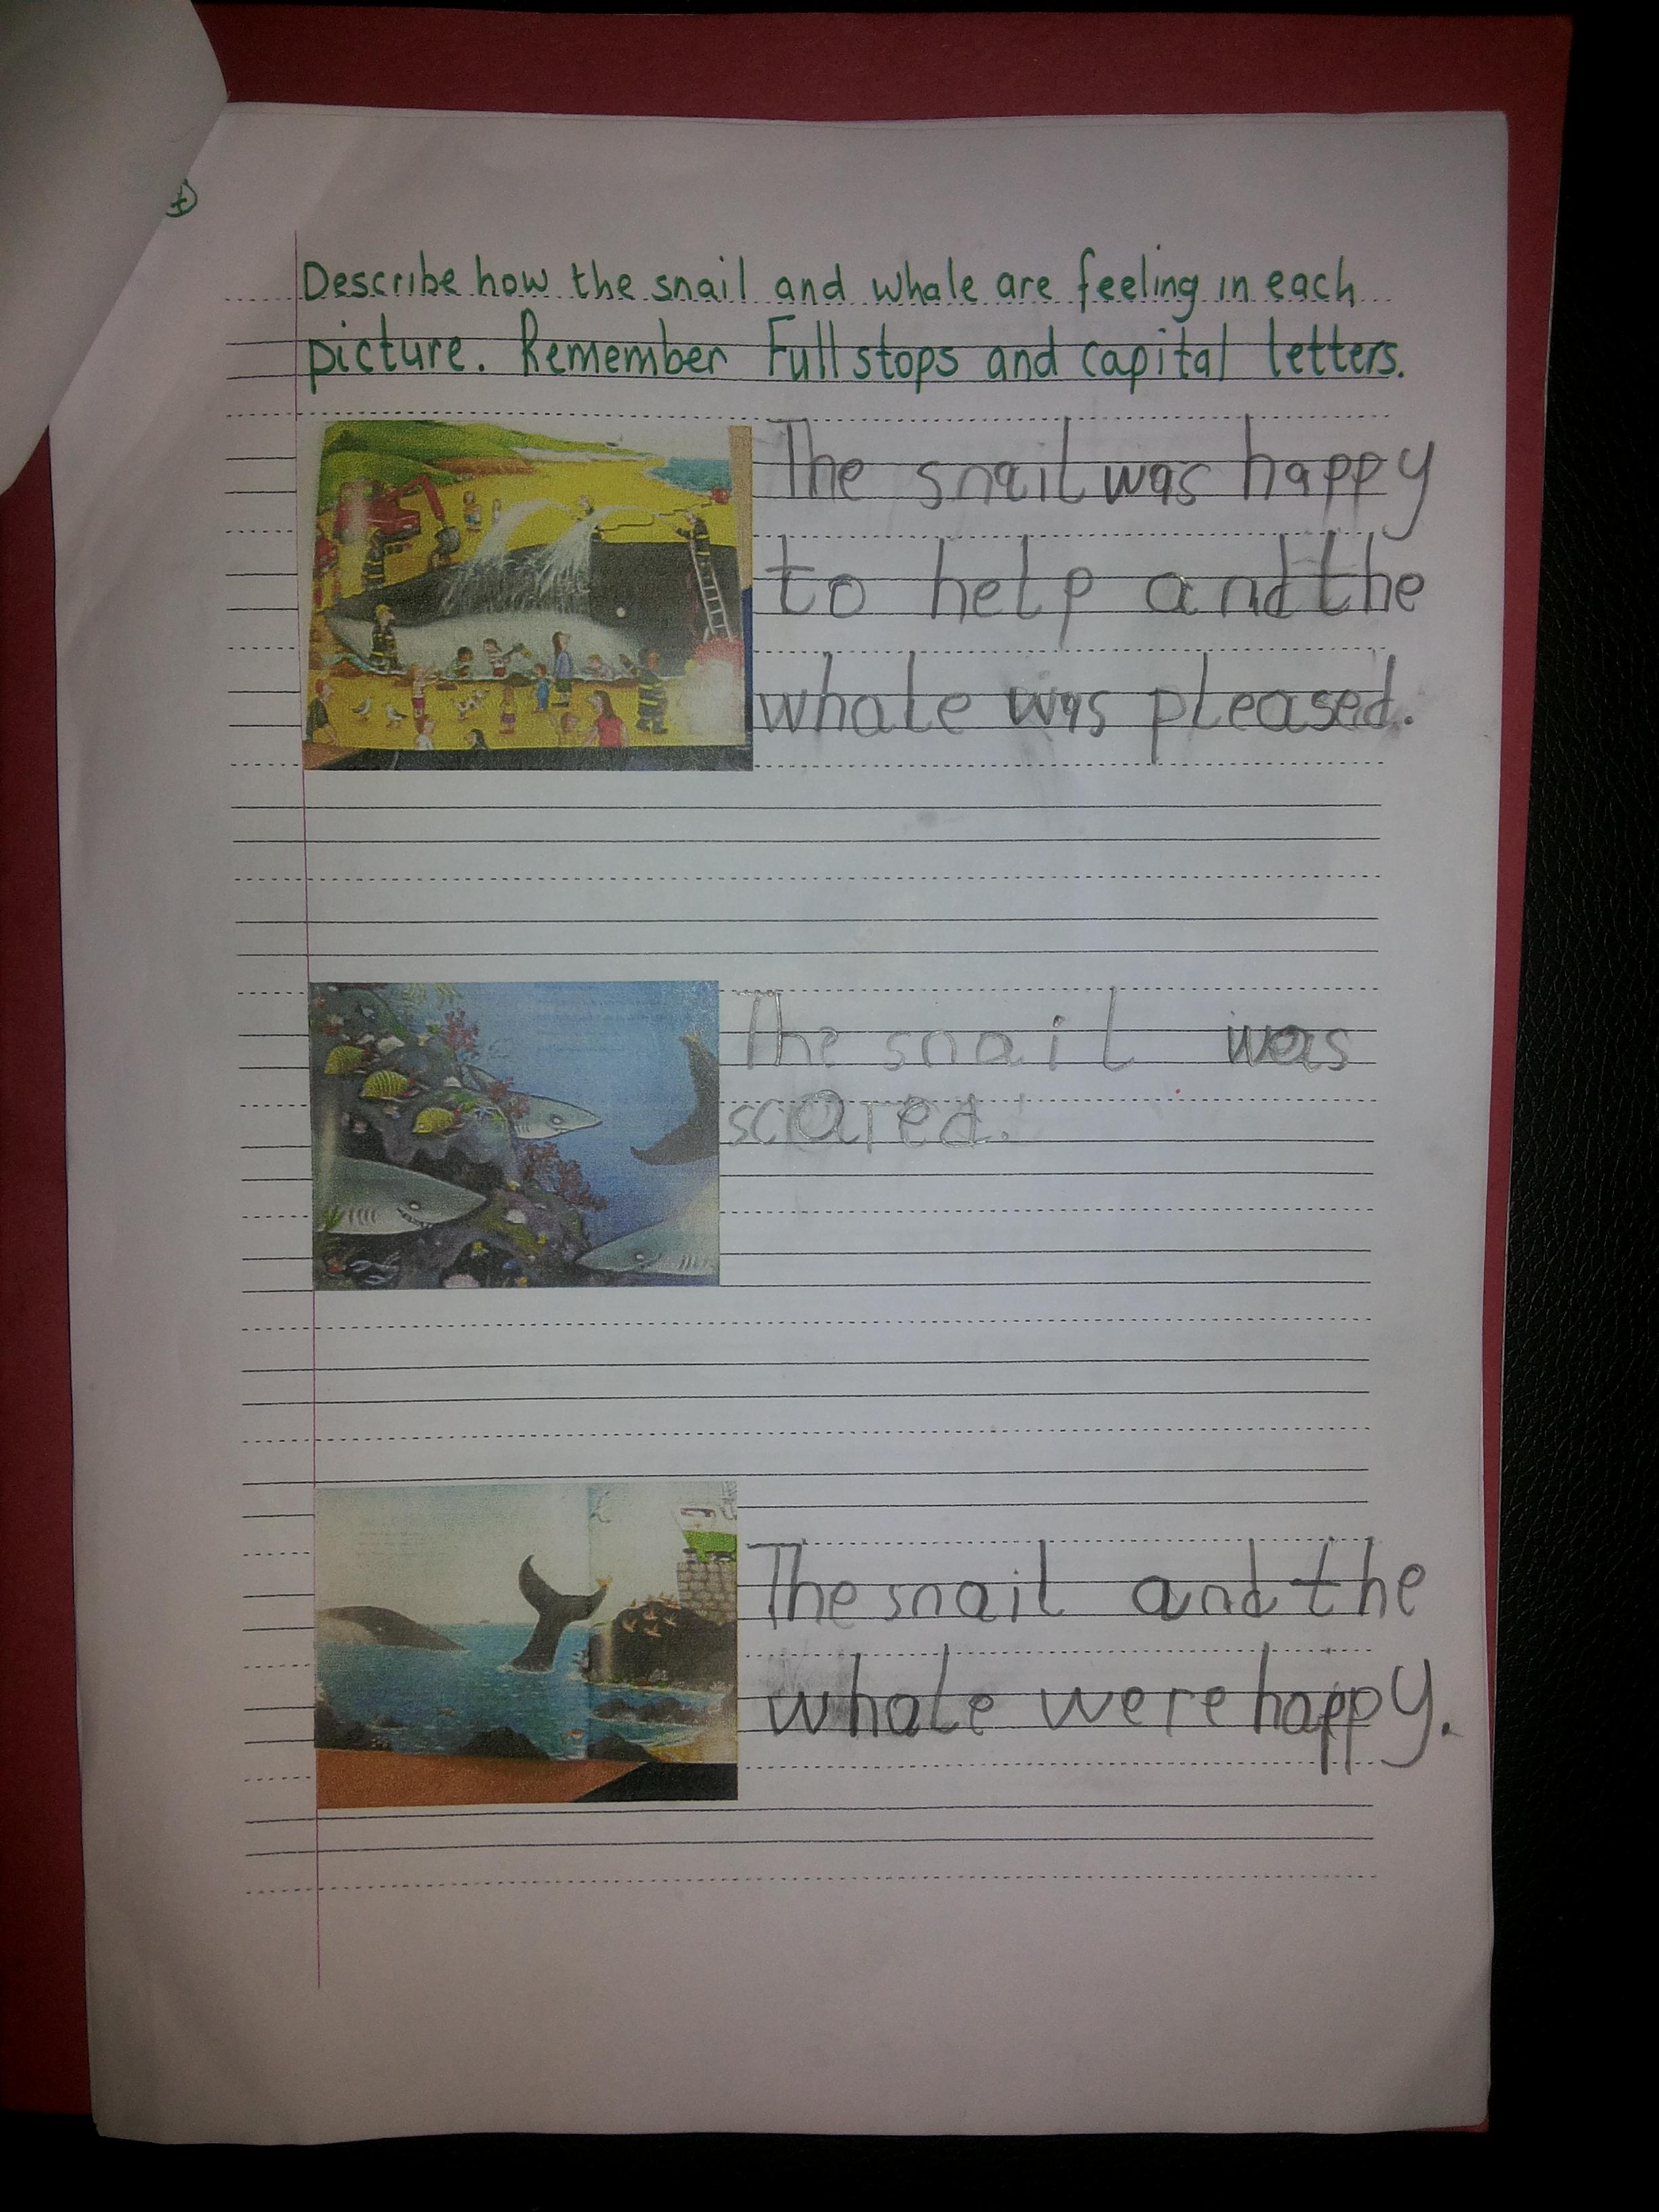 Describe how the snail and whale are feeling in each
picture. Remember Full stops and capital letters.
The snail was happy
to help and the
whale was pleased.
The snail was
scared.
The snail and the
whale were happy.